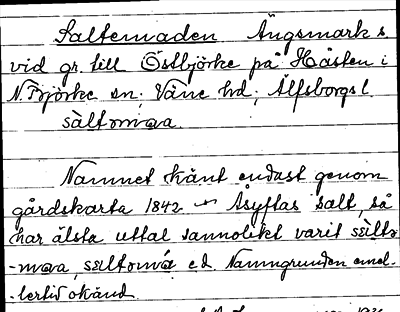 Saltemaden Ängsmark s.
vid gr. till Östbjörke på Håsten i
N. Björke sn; Väne hd; Älfsborgs l.
sàltomɑva
Namnet känt endast genom
gårdskarta 1842. Åsyftas salt, så
har älsta uttal sannolikt varit sàlto-
-mɑva, saltomá e.d. Namngrunden emel-
-lertid okänd.